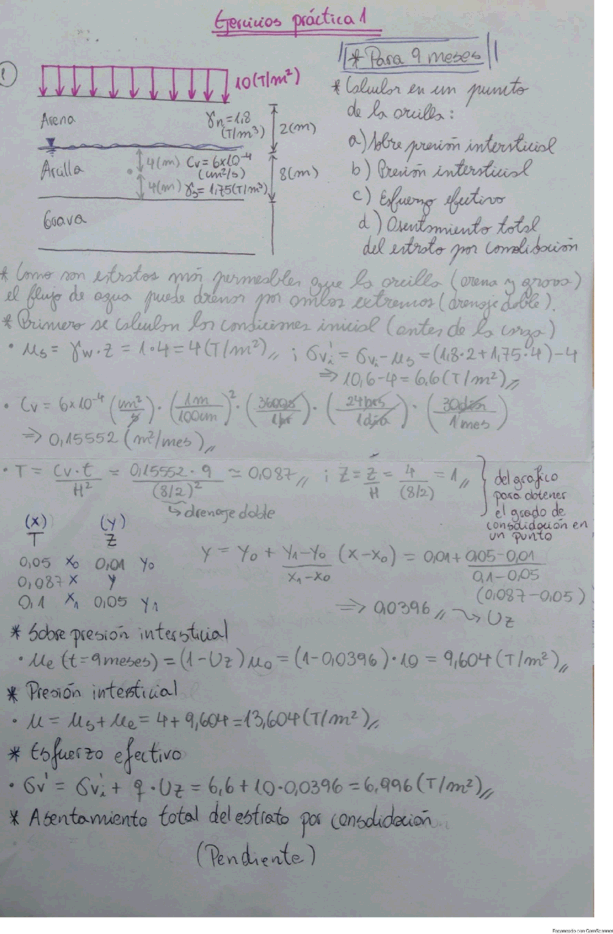 Ejercicios práctica 1
* Para 9 meses
1
10 (T/m²)
Arena
γn = 1,8 (T/m³)
2(m)
Arcilla
4(m)
4(m)
Cv = 6x10⁻⁴ (cm²/s)
γs = 1,75 (T/m³)
8(m)
Grava
* Calcular en un punto
de la arcilla:
a) Sobre presión intersticial
b) Presión intersticial
c) Esfuerzo efectivo
d) Asentamiento total
del estrato por consolidación
* Como son estratos más permeables que la arcilla (arena y grava)
el flujo de agua puede drenar por ambos extremos (drenaje doble).
* Primero se calculan las condiciones inicial (antes de la carga)
• μs = γw · z = 1·4 = 4 (T/m²) ; σvi' = σvi - μs = (1,8·2 + 1,75·4) - 4
=> 10,6 - 4 = 6,6 (T/m²)
• Cv = 6x10⁻⁴ (cm²/s) · (1m/100cm)² · (3600s/1hr) · (24hrs/1día) · (30días/1mes)
=> 0,15552 (m²/mes)
• T = Cv·t/H² = 0,15552·9/(8/2)² ≃ 0,087 ; Z = z/H = 4/(8/2) = 1
drenaje doble
del gráfico
para obtener
el grado de
consolidación en
un punto
(x) (y)
T Z
0,05 x₀ 0,01 y₀
0,087 x y
0,1 x₁ 0,05 y₁
y = y₀ + (y₁-y₀)/(x₁-x₀) (x-x₀) = 0,01 + (0,05-0,01)/(0,1-0,05)
(0,087-0,05)
=> 0,0396 → Uz
* Sobre presión intersticial
• μe (t=9meses) = (1-Uz) μo = (1-0,0396)·10 = 9,604 (T/m²)
* Presión intersticial
• μ = μs + μe = 4 + 9,604 = 13,604 (T/m²)
* Esfuerzo efectivo
• σv' = σvi' + q · Uz = 6,6 + 10·0,0396 = 6,996 (T/m²)
* Asentamiento total del estrato por consolidación
(Pendiente)
Escaneado con CamScanner